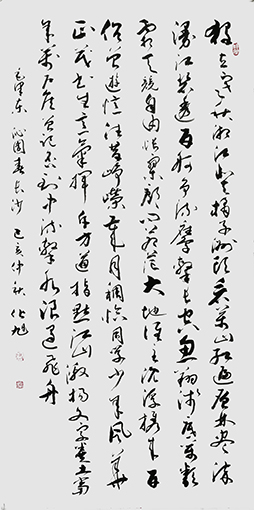 独立寒秋湘江北去橘子洲头看万山红遍层林尽染
漫江碧透百舸争流鹰击长空鱼翔浅底万类
霜天竞自由怅寥廓问苍茫大地谁主沉浮携来百
侣曾游忆往昔峥嵘岁月稠恰同学少年风华
正茂书生意气挥斥方遒指点江山激扬文字粪土当
年万户侯曾记否到中流击水浪遏飞舟
毛泽东沁园春长沙己亥仲秋化旭